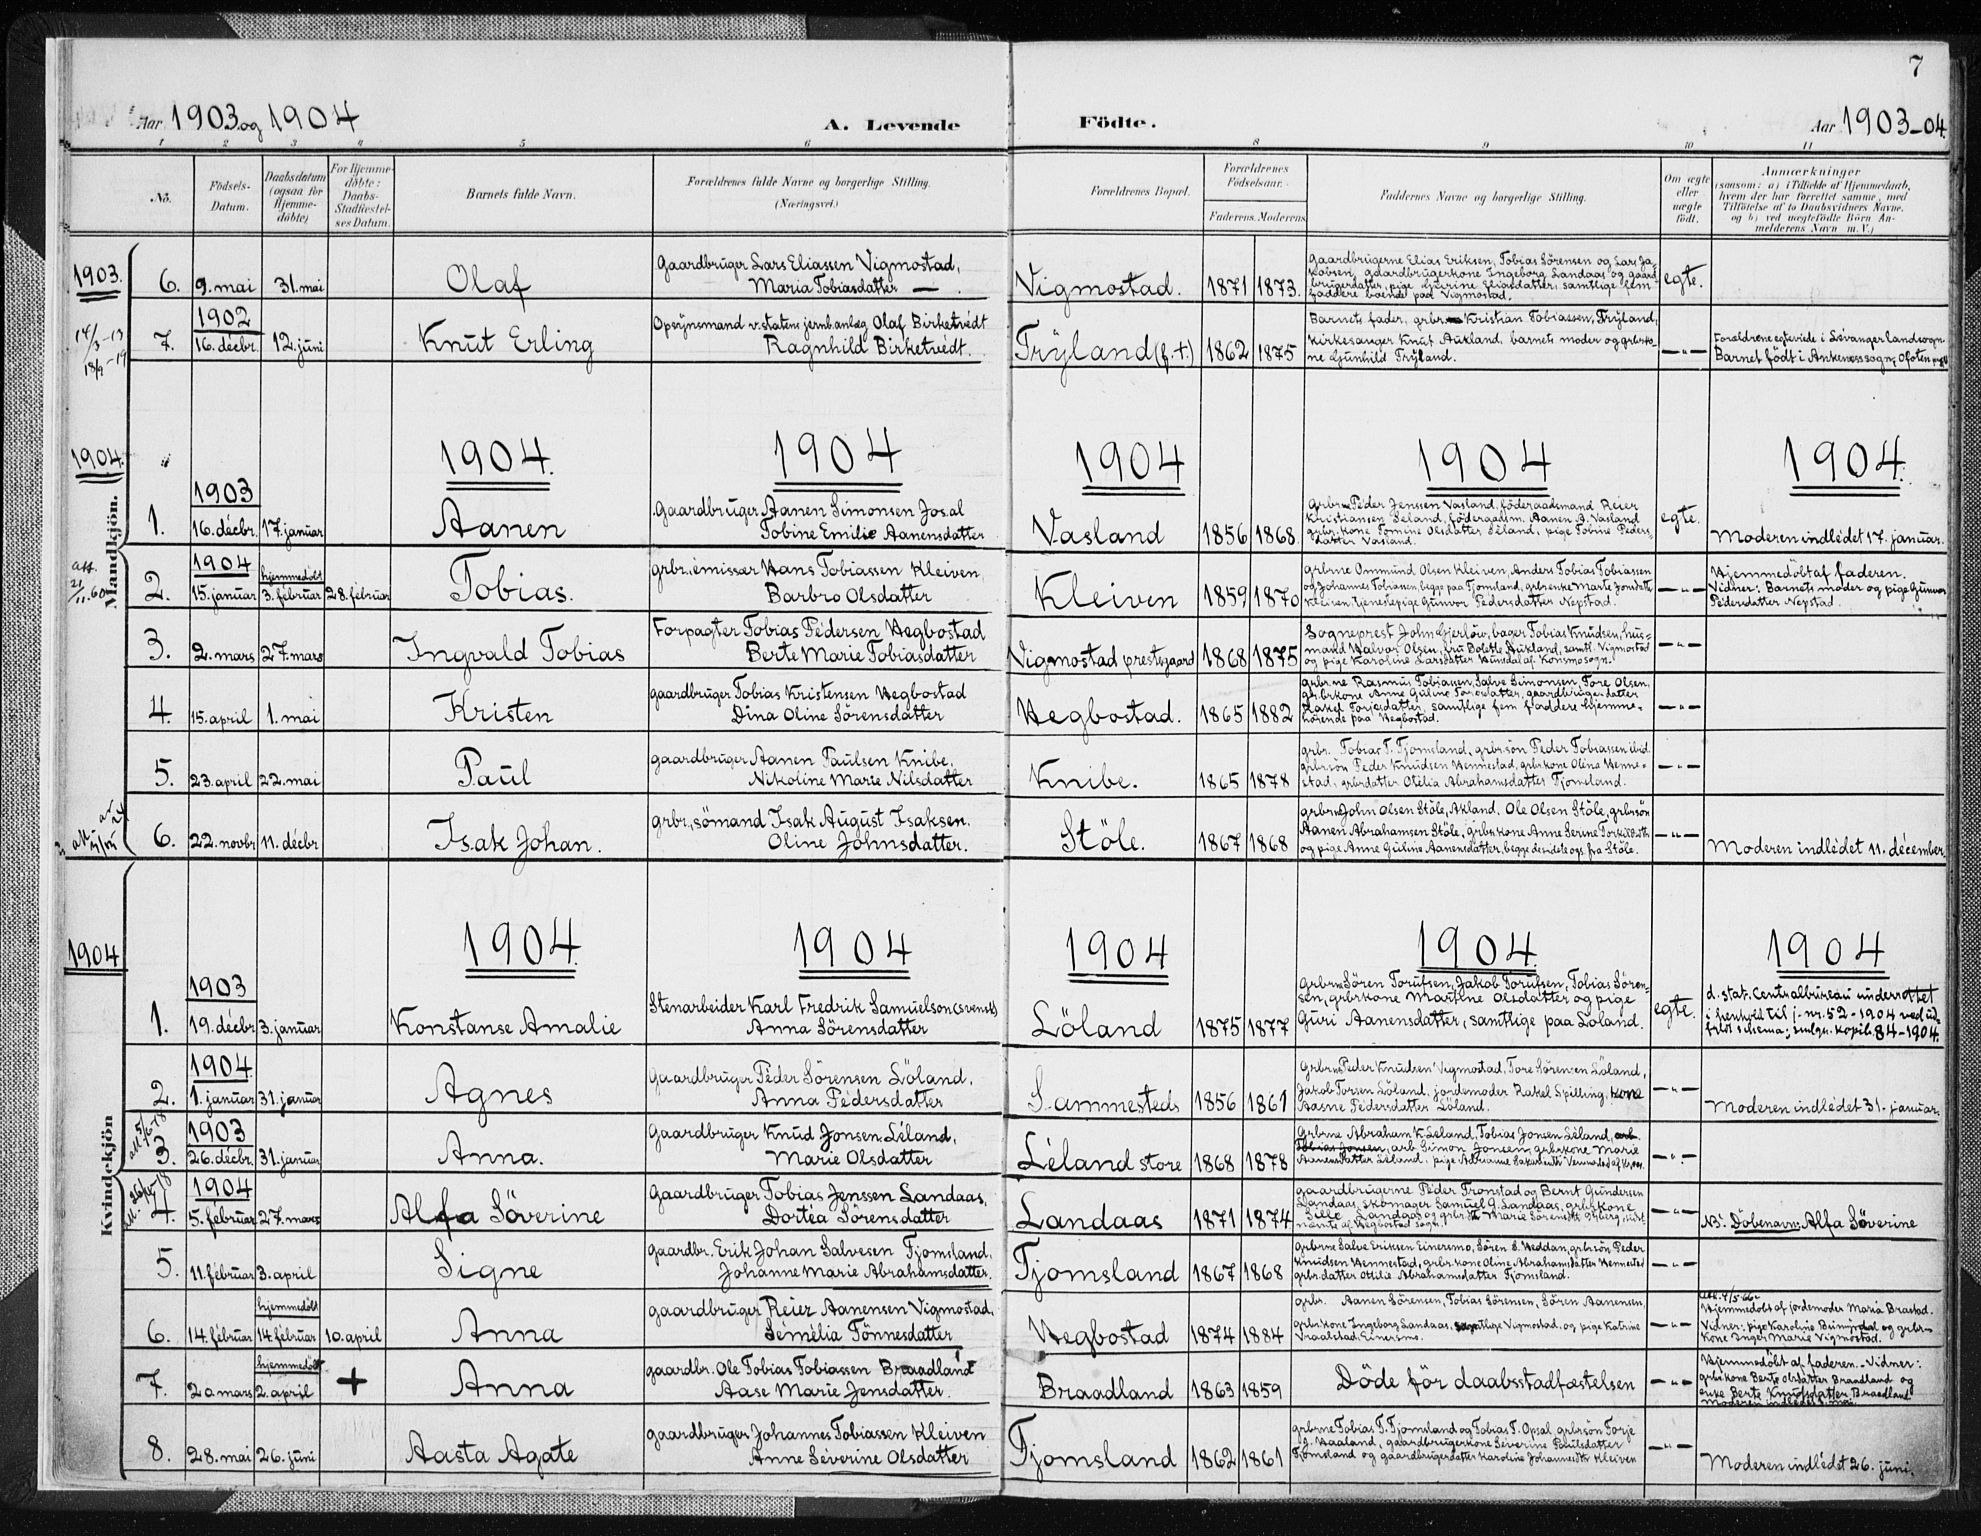 7
Aar 1903 og 1904
A. Levende Födte.
Aar 1903-04.
1 2 3 4 5 6 8 9 10 11
No.
Födsels-Datum.
Daabsdatum (ogsaa for Hjemme-döbte)
For Hjemme-döbte: Daabs-Stadfæstel-ses Datum.
Barnets fulde Navn.
Forældrenes fulde Navne og borgerlige Stilling. (Næringsvei.)
Forældrenes Bopæl.
Forældrenes Födselsaar.
Faderens. Moderens.
Faddernes Navne og borgerlige Stilling.
Om ægte eller uægte födt.
Anmærkninger
(saasom: a) i Tilfælde af Hjemmedaab, hvem der har forrettet samme, med Tilföielse af to Daabsvidners Navne. og b) ved uægtefödte Börn An-melderens Navn m. V.)
1903.
6. 9. mai 31. mai Olaf
Gaardbruger Lars Eliassen Vigmostad,
Maria Tobiasdatter —
Vigmostad. 1871 1873.
Gaardbrugerne Elias Eriksen, Tobias Sörensen og Lars Ja-
kobsen, gaardbrugerkone Ingeborg Landaas og gaard
brugerdatter, pige Gurine Eliasdatter, samtlige fem
faddere boende paa Vigmostad.
egte.
14/3-13
18/9-19
7. 1902 16. décbr. 12. juni Knut Erling
Opsynsmand v. statens jernb.anlæg Olaf Birketvédt
Ragnhild Birketvédt.
Trÿland (f.t.) 1862 1875
Barnets fader, grbr. Kristian Tobiassen, Trÿland,
Kirkesanger Knut Aukland, barnets moder og grbrko-
ne Gunhild Trÿland.
—"—
Forældrene egteviede i Levanger landsogn
Barnet födt i Ankenes sogn, Ofoten
1904.
Mandkjön.
1904. 1904 1904 1904 1904.
1. 1903 16. décbr. 17. januar Aanen
Gaardbruger Aanen Simonsen Jos.al
Tobine Emilie Aanensdatter
Vasland 1856 1868
Grbrne Péder Jenssen Vasland, föderaadsmand Reier
Kristiansen Léland, födergadsm. Aanen A. Vasland
grbrkone Tomine Olsdatter Léland, pige Tobine Péders-
datter Vasland.
egte.
Moderen indlédet 17. januar.
att. 21/11.60
2. 1904 15. januar hjemmedöbt 3. februar 28. februar Tobias.
grbr., emissær Hans Tobiassen Kleiven,
Barbro Olsdatter
Kleiven 1859 1870
grbrne Ommund Olsen Kleiven, Anders Tobias Tobiassen
og Johannes Tobiassen, begge paa Fjomsland, grbr.enke Marte Jonsdatter
Kleiven, tjenestepige Gunvor Pedersdatter Nepstad.
—"—
Hjemmedöbt af faderen.
Vidner: Barnets moder og pige Gunvor
Pédersdatter Nepstad.
3. 2. mars 27. mars Ingvald Tobias
Forpagter Tobias Pédersen Hegbostad
Berte Marie Tobiasdatter
Vigmostad prestegaard 1868 1875
Sogneprest John Gjerlöw, bager Tobias Knudsen, hus-
mand Halvor Olsen, fru Bolette Aukland, samtl. Vigmostad
og pige Karoline Larsdatter Humdal af Konsmo sogn.
—"—
4. 15. april 1. mai Kristen
gaardbruger Tobias Kristensen Hegbostad
Dina Oline Sörensdatter
Hegbostad. 1865 1882
grbrne Rasmus Tobiassen, Salve Simonsen, Tore Olsen,
grbrkone Anne Guline Toresdatter, gaardbrugerdatter
Rakel Torjesdatter, samtlige fem faddere hjemme-
hörende paa Hegbostad.
—"—
5. 23. april 22. mai Paul
gaardbruger Aanen Paulsen Knibe,
Nikoline Marie Nilsdatter
Knibe. 1865 1878
grbr. Tobias T. Fjomsland, grbr.sön Peder Tobiassen ibid.
grbrsön Peder Knudsen Hennestad, grbrkone Olina Henne-
stad, grbrdatter Otelia Abrahamsdatter Fjomsland.
—"—
6. 22. novbr 11. décbr Isak Johan.
grbr., sömand Isak August Isaksen.
Oline Johnsdatter.
Stöle. 1867 1868
grbrne John Olsen Stöle, Akland, Ole Olsen Stöle, grbrsön
Aanen Abrahamsen Stöle, grbrkone Anne Serine Torkildsdtr
og pige Anne Guline Aanensdatter, begge desidste ogs. fra Stöle.
—"—
Moderen indlédet 11. décember.
1904
Kvindekjön
1904 1904 1904 1904. 1904
1. 1903 19. décbr 3. januar Konstanse Amalie
Stenarbeider Karl Fredrik Samuelson (svensk)
Anna Sörensdatter
Löland 1875 1877
Grbrne Sören Torufsen, Jakob Torufsen, Tobias Sören-
sen, grbrkone Martine Olsdatter og pige
Guri Aanensdatter, samtlige paa Löland.
egte.
d. stat. Centralbureau underrettet
i henhold til j.nr. 52-1904 ved ud-
fyldt schema; smlgn. kopib. 84-1904.
2. 1904 1. januar 31. januar Agnes
Gaardbruger Péder Sörensen Löland.
Anna Pédersdatter
Sammesteds 1856 1861
Grbrne Peder Knudsen Vigmostad, Tore Sörensen Löland,
Jakob Torsen Löland, jordemoder Rakel Spilling, kone
Aasne Pédersdatter Löland.
—"—
Moderen indlédet 31. januar.
3. 1903 26. décbr. 31. januar Anna.
Gaardbruger Knud Jonsen Léland,
Marie Olsdatter
Léland store 1868 1878
Grbrne Abraham K. Léland, Tobias Jonsen Léland, arb.
Tobias Jonsen, arb Simon Jonsen, grbrkone Marie
Aanensdatter Léland, pige
—"—
4. 1904 5. februar 27. mars Alfa Söverine
Gaardbruger Tobias Jenssen Landaas,
Dortéa Sörensdatter
Landaas 1871 1874
gaardbrugerne Péder Tronstad og Bernt Gundersen
Landaas, skomager Samuel G. Landaas, grbrkone
Sille Landaas og
—"—
NB. Döbenavn: Alfa Söverine
5. 11. februar 3. april Signe
gaardbr. Erik Johan Salvesen Fjomsland,
Johanne Marie Abrahamsdatter.
Fjomsland 1867 1868
grbrne Salve Eriksen Eineremo, Sören S. Heddan, grbrsön Peder
Knudsen Hennestad, grbr.kone Oline Abrahamsdatter Hennestad
grbr.datter Otilie Abrahamsdatter Fjomsland.
—"—
6. 14. februar hjemmedöbt 14. februar 10. april Anna
gaardbruger Reier Aanensen Vigmostad,
Sémélia Tönnesdatter
Hegbostad 1874 1884
grbr. Aanen Sörensen, Tobias Sörensen, Sören Aanensen,
grbrkone Ingeborg Landaas, samtlige Vigmostad, og pige Katrine
—"—
Att. 4/5-66.
Hjemmedöbt af jordemoder Maria Brastad.
Vidner: pige Karoline og grbr-
kone Inger Marie Vigmostad.
7. 20. mars hjemmedöbt 2. april + Anna
gaardbr. Ole Tobias Tobiassen Braadland
Aase Marie Jensdatter.
Braadland 1863 1859
Döde för daabsstadfæstelsen
—"—
Hjemmedöbt af faderen. - Vidner:
grbrkone Berte Olsdatter Braadland og
enke Berte Knudsdatter Braadland
Moderen indledet 8. mai.
8. 28. mai 26. juni Aasta Agate
gaardbruger Johannes Tobiassen Kleiven
Anne Séverine Olsdatter
Fjomsland 1862 1861
grbrne Tobias T. Fjomsland og Tobias T. Opsal, grbrsön Torje
J. Haaland, gaardbrugerkone Séverine Paulsdatter
Fjomsland og gaardbrugerdatter Karoline Johannesdtr Kleiven
—"—
Moderen indlédet 26. juni.